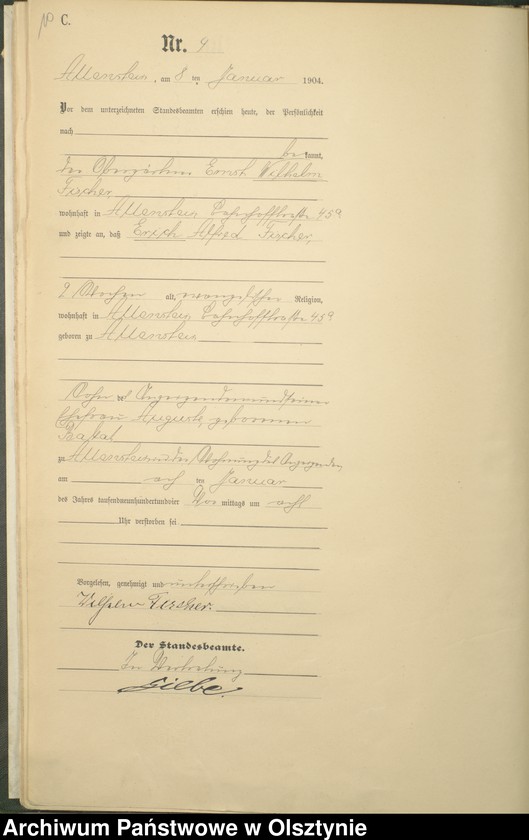 C.
Nr. 9
Allenstein, am 8 ten Januar 1904.
Vor dem unterzeichneten Standesbeamten erschien heute, der Persönlichkeit
nach
bekannt,
der Ernst Wilhelm
Fischer,
wohnhaft in Allenstein Bahnhofstraße 45a
und zeigte an, daß Erich Alfred Fischer,
2 Wochen alt, evangelischer Religion,
wohnhaft in Allenstein Bahnhofstraße 45a
geboren zu Allenstein
Sohn des Anzeigenden und seiner
Ehefrau Auguste, geborenen
zu Allenstein in der Wohnung des Anzeigenden,
am ten Januar
des Jahrs tausendneunhundertundvier Vor mittags um acht
Uhr verstorben sei
Vorgelesen, genehmigt und unterschrieben
Wilhelm Fischer.
Der Standesbeamte.
In Vertretung
Archiwum Państwowe w Olsztynie